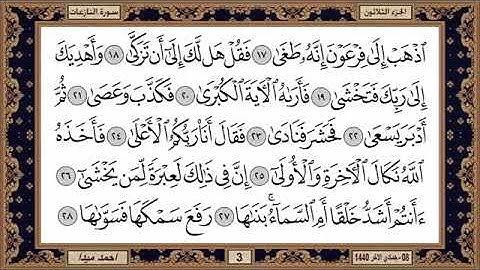 سورة النازعات
الجزء الثلاثون
ٱذۡهَبۡ إِلَىٰ فِرۡعَوۡنَ إِنَّهُۥ طَغَىٰ ١٧ فَقُلۡ هَل لَّكَ إِلَىٰٓ أَن تَزَكَّىٰ ١٨ وَأَهۡدِيَكَ
إِلَىٰ رَبِّكَ فَتَخۡشَىٰ ١٩ فَأَرَىٰهُ ٱلۡأٓيَةَ ٱلۡكُبۡرَىٰ ٢٠ فَكَذَّبَ وَعَصَىٰ ٢١ ثُمَّ
أَدۡبَرَ يَسۡعَىٰ ٢٢ فَحَشَرَ فَنَادَىٰ ٢٣ فَقَالَ أَنَا۠ رَبُّكُمُ ٱلۡأَعۡلَىٰ ٢٤ فَأَخَذَهُ
ٱللَّهُ نَكَالَ ٱلۡأٓخِرَةِ وَٱلۡأُولَىٰٓ ٢٥ إِنَّ فِي ذَٰلِكَ لَعِبۡرَةٗ لِّمَن يَخۡشَىٰٓ ٢٦
ءَأَنتُمۡ أَشَدُّ خَلۡقًا أَمِ ٱلسَّمَآءُۚ بَنَىٰهَا ٢٧ رَفَعَ سَمۡكَهَا فَسَوَّىٰهَا ٢٨
08 - جمادى الآخر 1440
3
احمد ميدا